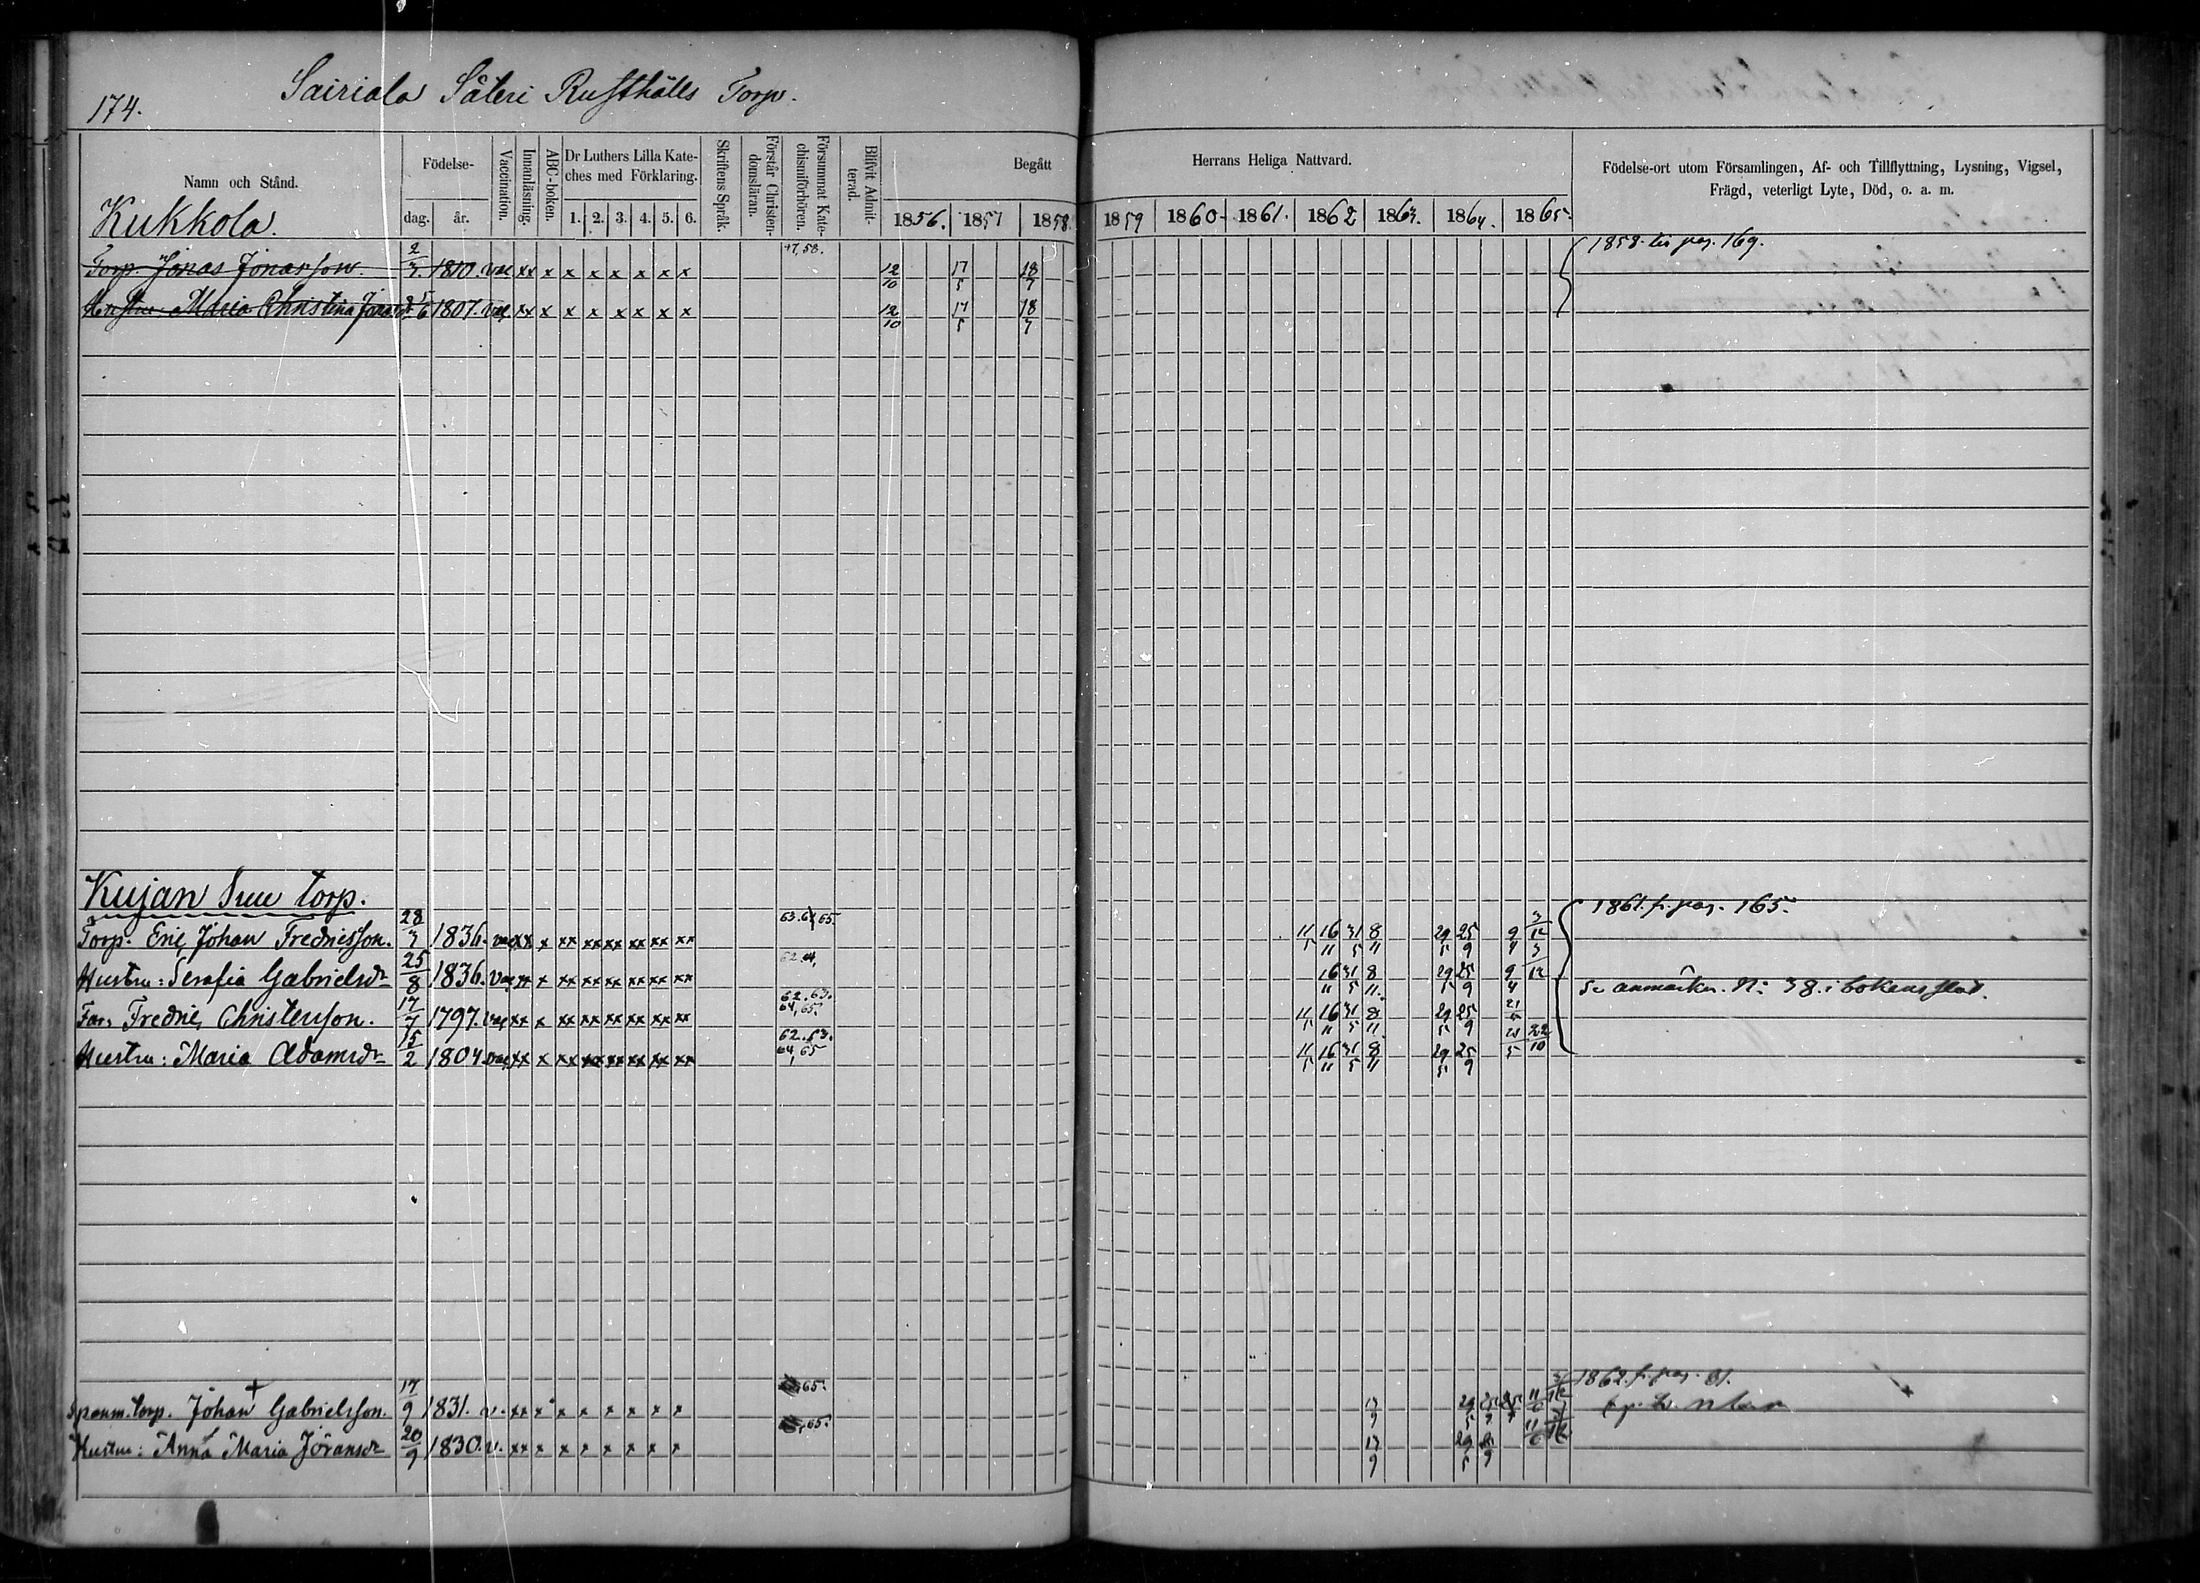 174.
Sairiala Säteri Rusthålls Torp.
Namn och Stånd.
Födelse-
dag. år.
Vaccination.
Innanläsning.
ABC-boken.
Dr Luthers Lilla Kate-
ches med Förklaring.
1. 2. 3. 4. 5. 6.
Skriftens Språk.
Förstår Christen-
domsläran.
Försummat Kate-
chismiförhören.
Blifvit Admit-
terad.
Begått
Herrans Heliga Nattvard.
1856. 1857 1858. 1859 1860. 1861. 1862 1863. 1864. 1865.
Födelse-ort utom Församlingen, Af- och Tillflyttning, Lysning, Vigsel,
Frägd, veterligt Lyte, Död, o. a. m.
Kukkola.
Torp. Jonas Jonasson. 2/7 1810. vac xx x x x x x x x 12/10 17/5 18/7 1858. til pag. 169.
Hustru: Maria Christina 1807. vac xx x x x x x x x 12/10 17/5 18/7
Kujan Suu torp.
Torp. Eric Johan Fredricsson. 28/3 1836. vac xx x xx xx xx xx xx xx 11/5 16/11 31/5 8/11 29/5 25/9 9/4 1861. fr. pag. 165.
Hustru: Serafia Gabrielsdr 25/8 1836. vac xx x xx xx xx xx xx xx 16/11 31/5 8/11 29/5 25/9 9/4 Se anmärkn. N: 38 i bokens slut.
Far. Fredric Christersson. 17/7 1797. vac xx x xx xx xx xx xx xx 62. 63. 64, 65. 11/5 16/11 31/5 8/11 29/5 25/9
Hustru: Maria Adamsdr 15/2 1804. vac xx x xx xx xx xx xx xx 62. 63. 64, 65 11/5 16/11 31/5 8/11 29/5 25/9 22/10
Spanm. torp. Johan Gabrielsson. 17/9 1831. v. xx x x x x x x x 65. 13/9 29/5 11/6 1862. fr. pag. 81.
Hustru: Anna Maria Jöransdr 20/9 1830. v. xx x x x x x x x 65. 13/9 29/5 11/6